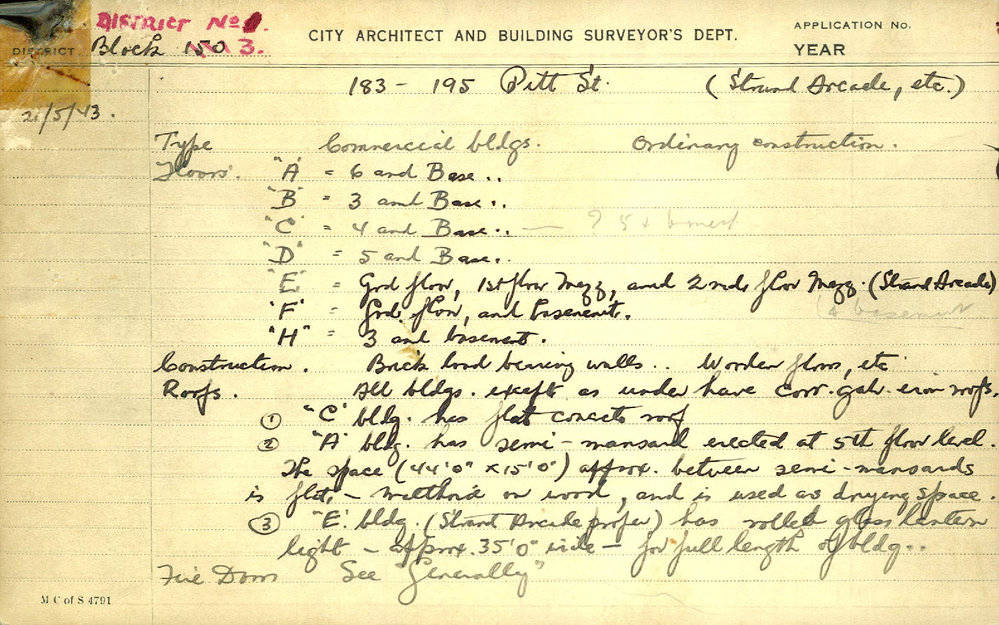 DISTRICT No 1.
DISTRICT Block 150 3.
CITY ARCHITECT AND BUILDING SURVEYOR'S DEPT.
APPLICATION No.
YEAR
183 - 195 Pitt St. (Strand Arcade, etc.)
21/5/43.
Type Commercial bldgs. Ordinary construction.
Floors. "A" = 6 and Base..
"B" = 3 and Base..
"C" = 4 and Base.. — ? 5 & bmest
"D" = 5 and Base..
"E" = Grd floor, 1st floor Mezz, and 2nd floor Mezz. (Strand Arcade)
(& basement
"F" = Grd. floor, and basement.
"H" = 3 and basement.
Construction. Brick load bearing walls.. Wooden floors, etc
Roofs. All bldgs. except as under have corr. galv. iron roofs.
① "C" bldg. has flat concrete roof
② "A" bldg. has semi-mansard erected at 5th floor level.
The space (44'0" x 15'0") approx. between semi-mansards
is flat - malthoid on wood, and is used as drying space.
③ "E" bldg. (Strand Arcade proper) has rolled glass lantern
light - approx. 35'0" wide - for full length of bldg..
Fire Doors See "Generally"
M C of S 4791